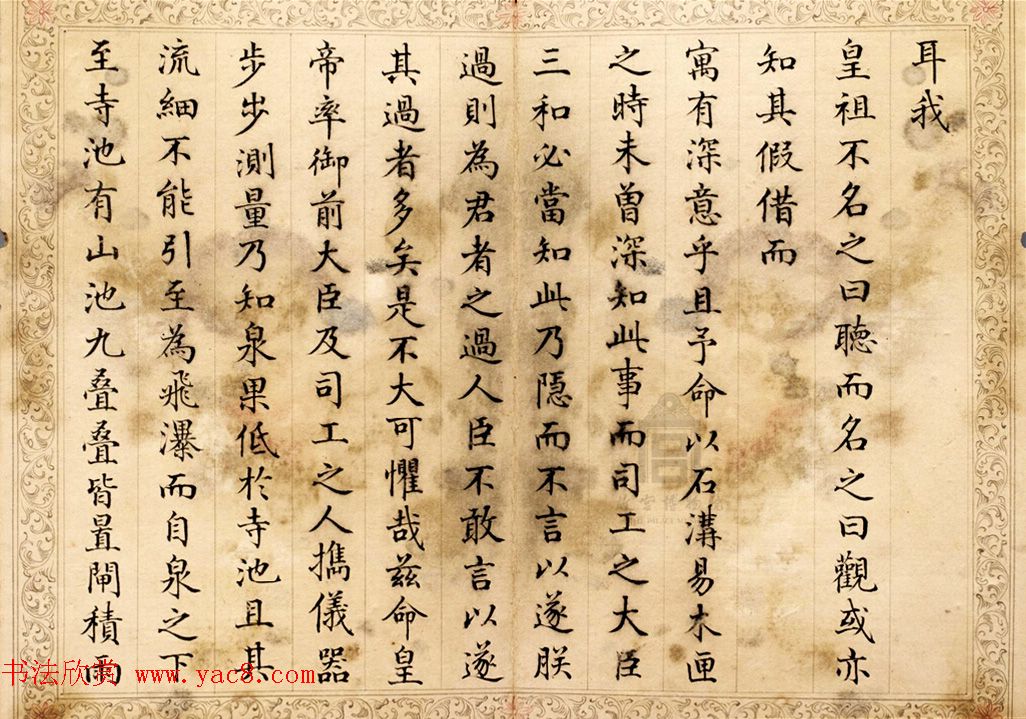 耳我
皇祖不名之曰聽而名之曰觀或亦
知其假借而
寓有深意乎且予命以石溝易木匣
之時未曾深知此事而司工之大臣
三和必當知此乃隱而不言以遂朕
過則為君者之過人臣不敢言以遂
其過者多矣是不大可懼哉茲命皇
帝率御前大臣及司工之人攜儀器
步步測量乃知泉果低於寺池且其
流細不能引至為飛瀑而自泉之下
至寺池有山池九疊疊皆置閘積雨
书法欣赏 www.yac8.com